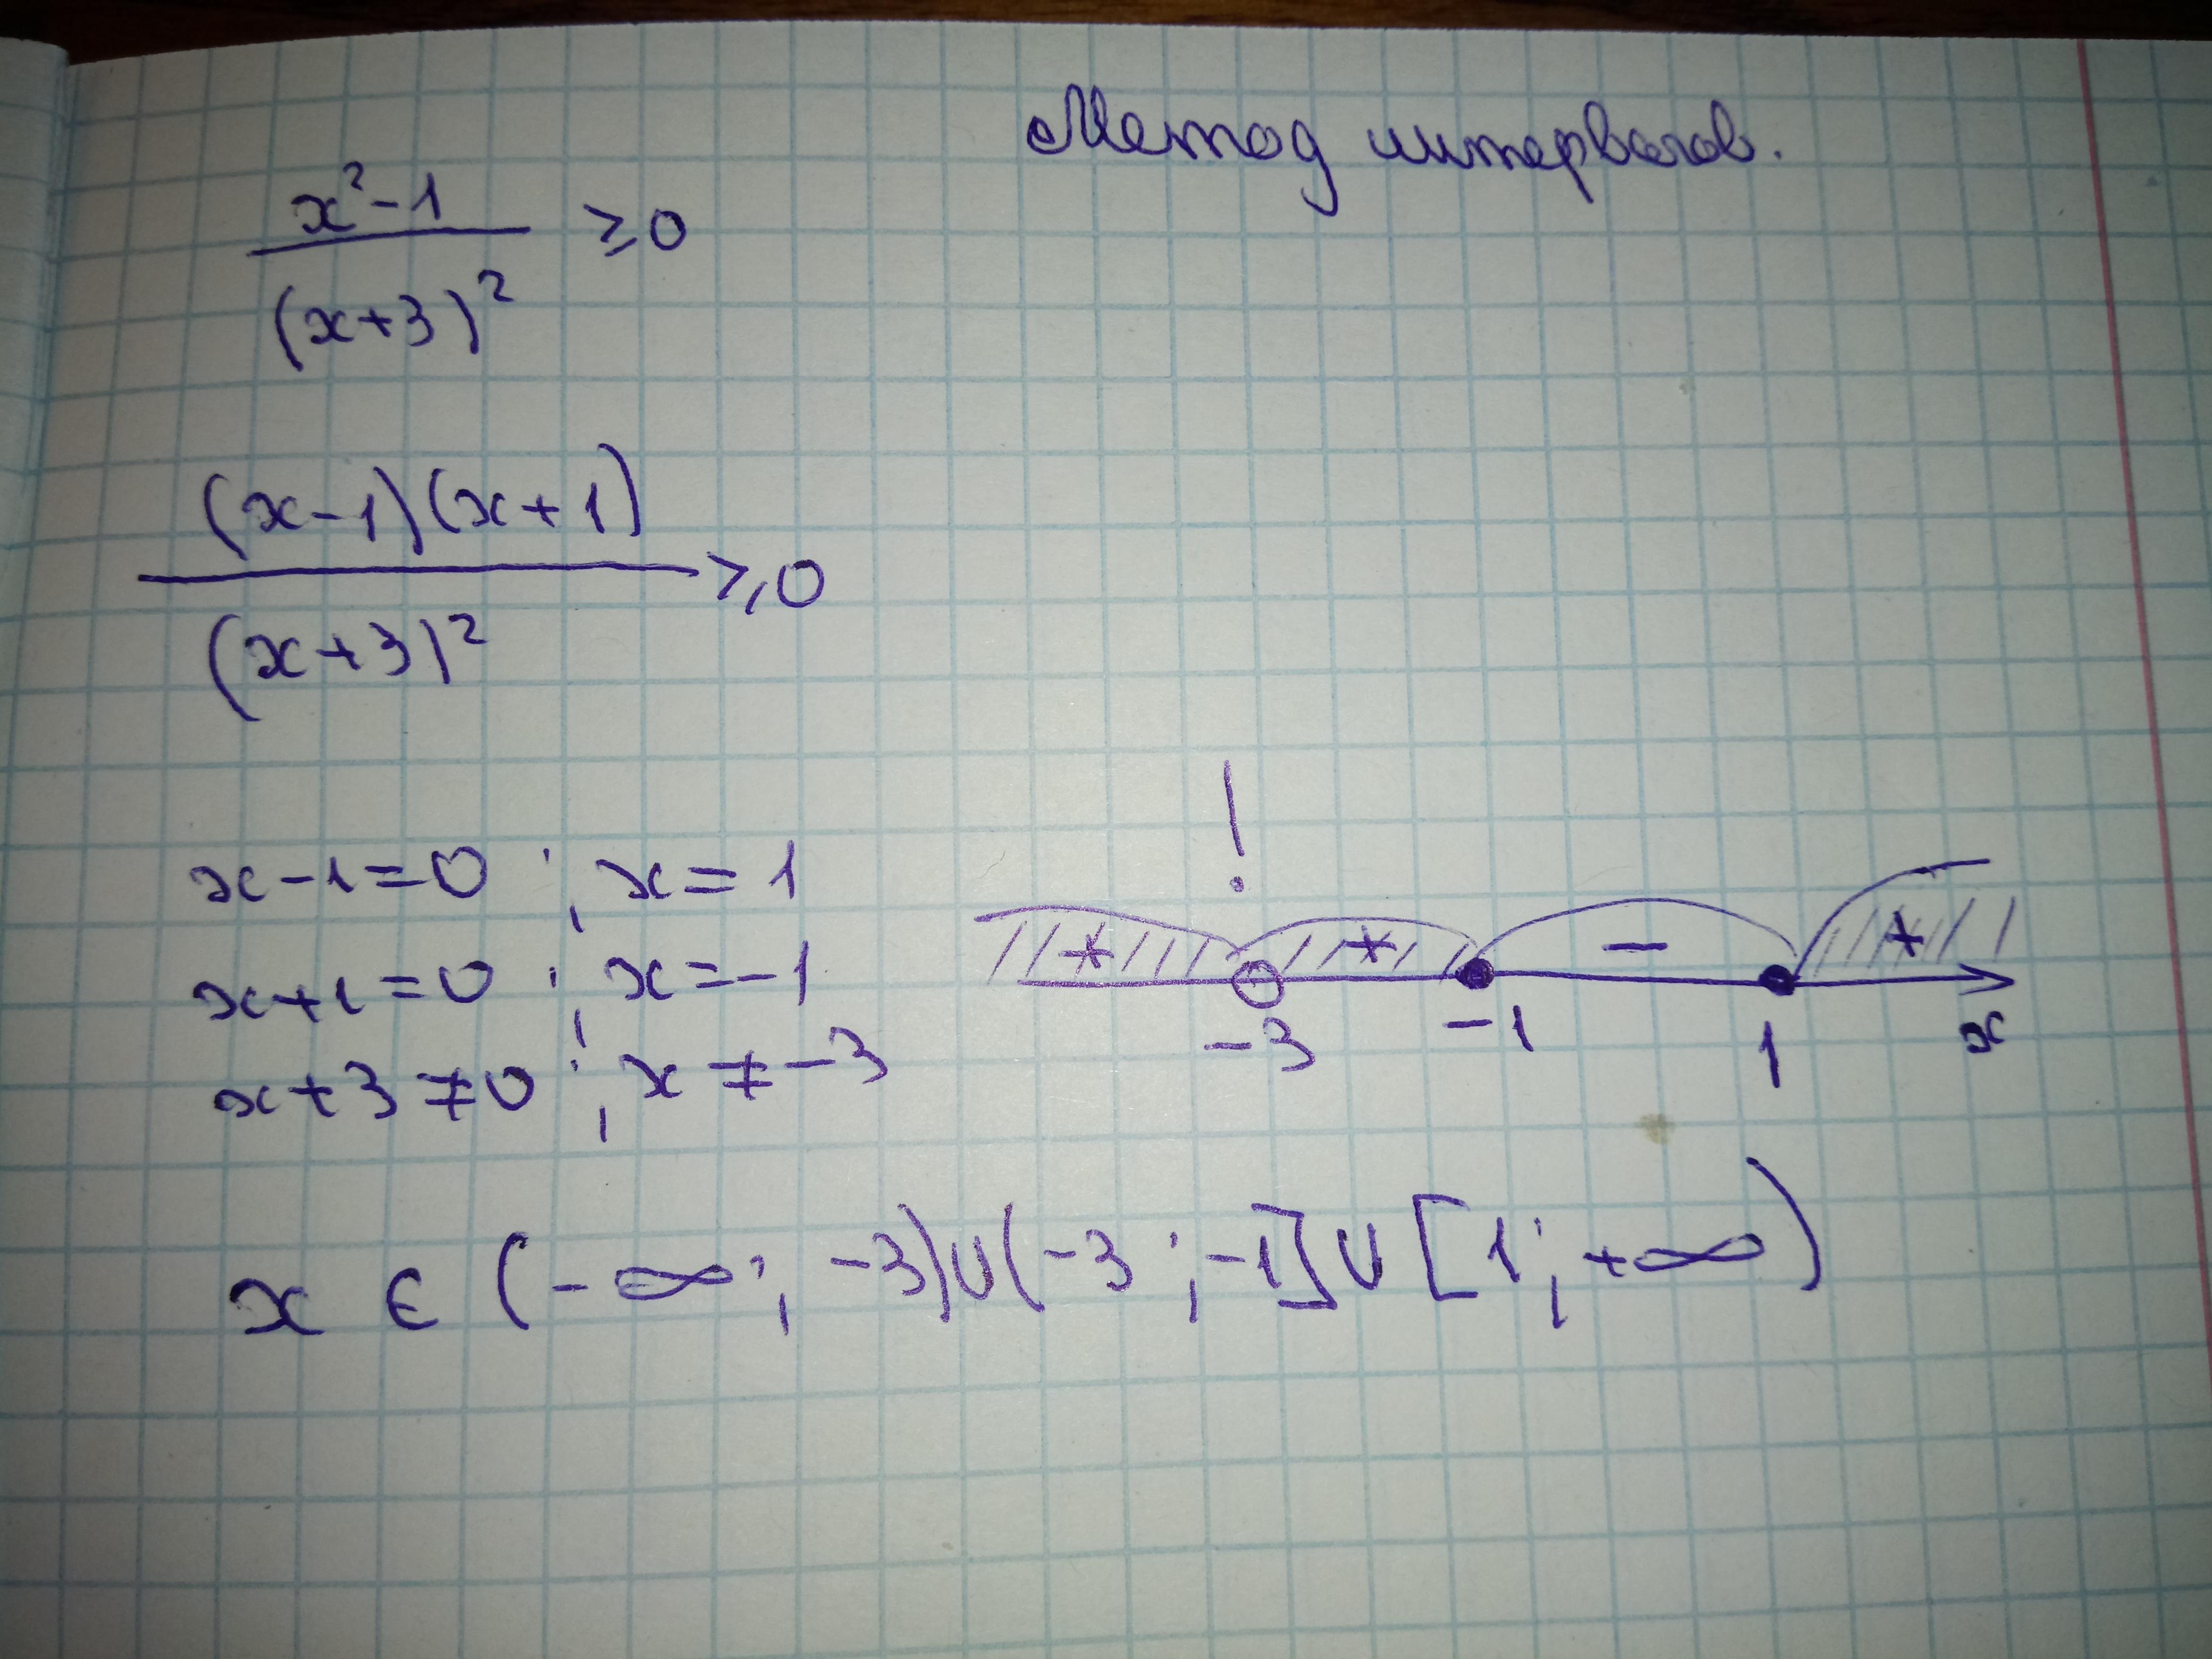 Метод интервалов.
x²-1 / (x+3)² ≥0
(x-1)(x+1) / (x+3)² ≥0
x-1=0 ; x=1
x+1=0 ; x=-1
x+3≠0 ; x≠-3
!
+ + - +
-3 -1 1 x
x ∈ (-∞; -3)∪(-3;-1]∪[1;+∞)